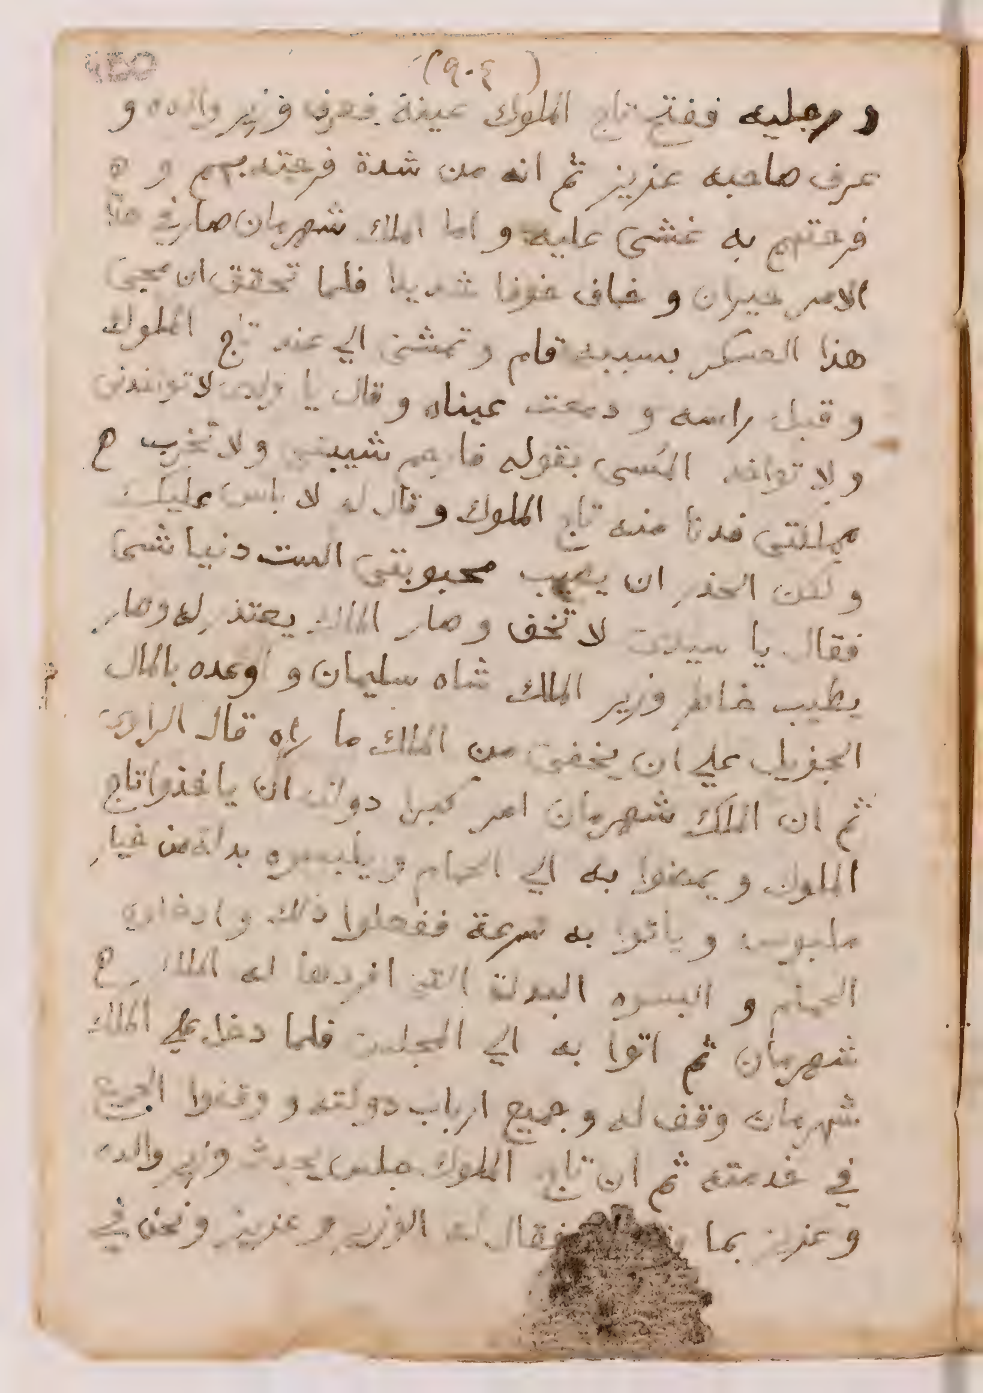 (٩٠٤)
و رجليه ففتح تاج الملوك عينة فعرف وزير والده و
عرف صاحبه عزيز ثم انه من شدة فرحته بهم و ه
فرحتهم به غشى عليه و اما الملك شهرمان صار في هذا
الامر حيران و خاف خوفا شديدا فلما تحقق ان مجيئ
هذا العسكر بسببه قام و تمشى الي عند تاج الملوك
و قبل راسه و دمعت عيناه و قال يا ولدى لا تواخذنى
و لا تواخذ المسى بقوله فارحم شيبتى و لا تخرب ه
مملكتى فدنا منه تاج الملوك و قال له لا باس عليك
و لكن الحذر ان يصيب محبوبتى الست دنيا شئ
فقال يا سيدى لا تخف و صار الملك يعتذر له و صار
يطيب خاطر وزير الملك شاه سليمان و اوعده بالمال
الجزيل علي ان يخفى من الملك ما راه قال الراوى
ثم ان الملك شهرمان امر كبرا دولته ان ياخذوا تاج
الملوك و يمضوا به الي الحمام و يلبسوه بدلة من خيار
ملبوسه و ياتوا به سرعة ففعلوا ذلك و ادخلوه
الحمام و البسوه البدلة التى افردها له الملك ه
شهرمان ثم اتوا به الي المجلس فلما دخل علي الملك
شهرمان وقف له و جميع ارباب دولته و وقفوا الجميع
في خدمته ثم ان تاج الملوك جلس يحدث وزير والده
و عزيز بما فقال له الوزير و عزيز و نحن في